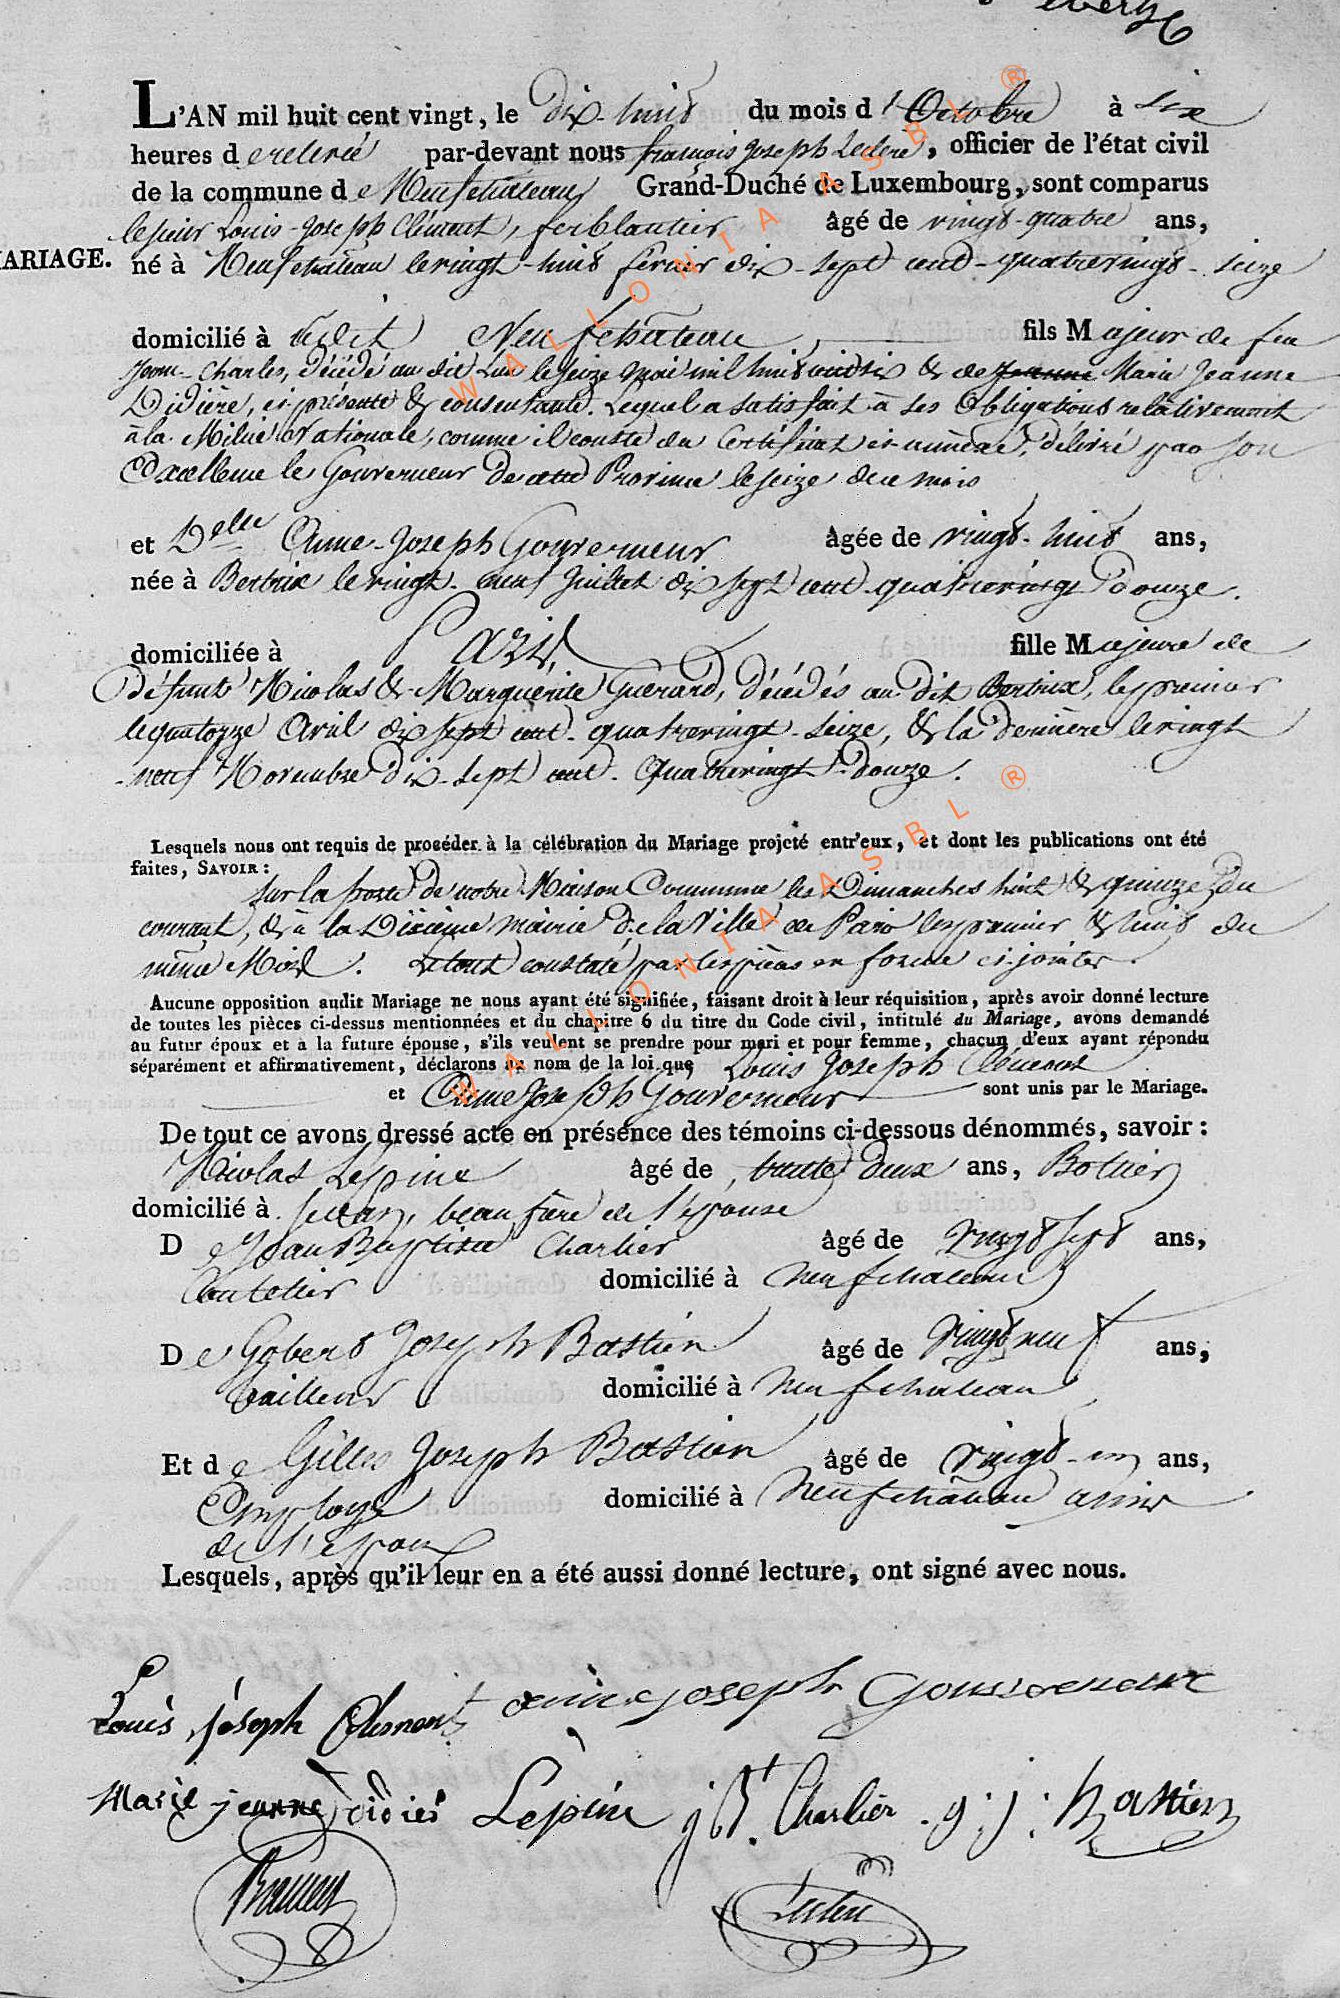 L'AN mil huit cent vingt, le Dix-huit du mois d'Octobre à six
heures de relevée par-devant nous françois Joseph Leclere, officier de l'état civil
de la commune de Neufchateau Grand-Duché de Luxembourg, sont comparus
le sieur Louis-Joseph Clément, ferblantier âgé de vingt-quatre ans,
MARIAGE. né à Neufchâteau le vingt-huit fevrier dix-sept cent-quatrevingt-seize
domicilié à Neufchâteau fils Majeur de feu
Jean-Charles, décédé au dit Lieu le seize Mai mil huit cent six & de Marie Jeanne
Didière, ci présente & consentante. Lequel a satisfait à ses Obligations relativement
à la Milice Nationale, comme il conste du Certificat ci annexé, délivré par son
Excellence le Gouverneur de cette Province le seize de ce mois
et Delle Anne-Joseph Gouverneur âgée de vingt-huit ans,
née à Bertrix le vingt-neuf Juillet dix sept cent-quatrevingt douze.
domiciliée à Paris, fille Majeure de
défunts Nicolas & Marguerite Guerard, décédés au dit Bertrix, le premier
le quatorze Avril dix sept cent-quatrevingt-seize, & la dernière le vingt
-neuf Novembre dix-sept cent-quatrevingt-douze.
Lesquels nous ont requis de proséder à la célébration du Mariage projeté entr'eux, et dont les publications ont été
faites, SAVOIR:
sur la porte de notre Maison Commune les Dimanches huit & quinze du
courant, & à la Dixième mairie de la Ville de Paris les premier & huit du
même Mois. Le tout constaté par les pièces en forme ci jointes.
Aucune opposition audit Mariage ne nous ayant été signifiée, faisant droit à leur réquisition, après avoir donné lecture
de toutes les pièces ci-dessus mentionnées et du chapitre 6 du titre du Code civil, intitulé du Mariage, avons demandé
au futur époux et à la future épouse, s'ils veulent se prendre pour mari et pour femme, chacun d'eux ayant répondu
séparément et affirmativement, déclarons au nom de la loi que Louis Joseph Clément
et Anne Joseph Gouverneur sont unis par le Mariage.
De tout ce avons dressé acte en présence des témoins ci-dessous dénommés, savoir:
Nicolas Lepine âgé de trente deux ans, Bottier
domicilié à Sedan, beau frère de l'épouse
De Jean Baptiste Charlier âgé de vingt sept ans,
Coutelier domicilié à Neufchateau
De Gobert Joseph Bastien âgé de vingt neuf ans,
tailleur domicilié à Neufchateau
Et de Gilles Joseph Bastien âgé de vingt-un ans,
Employé domicilié à Neufchateau amis
de l'époux
Lesquels, après qu'il leur en a été aussi donné lecture, ont signé avec nous.
Louis joseph Clement anne joseph Gouverneur
Marie jeanne didier Lepine j Bt. Charlier g: j: Bastien
Bastien Leclere
WALLONIA ASBL ®
WALLONIA ASBL ®